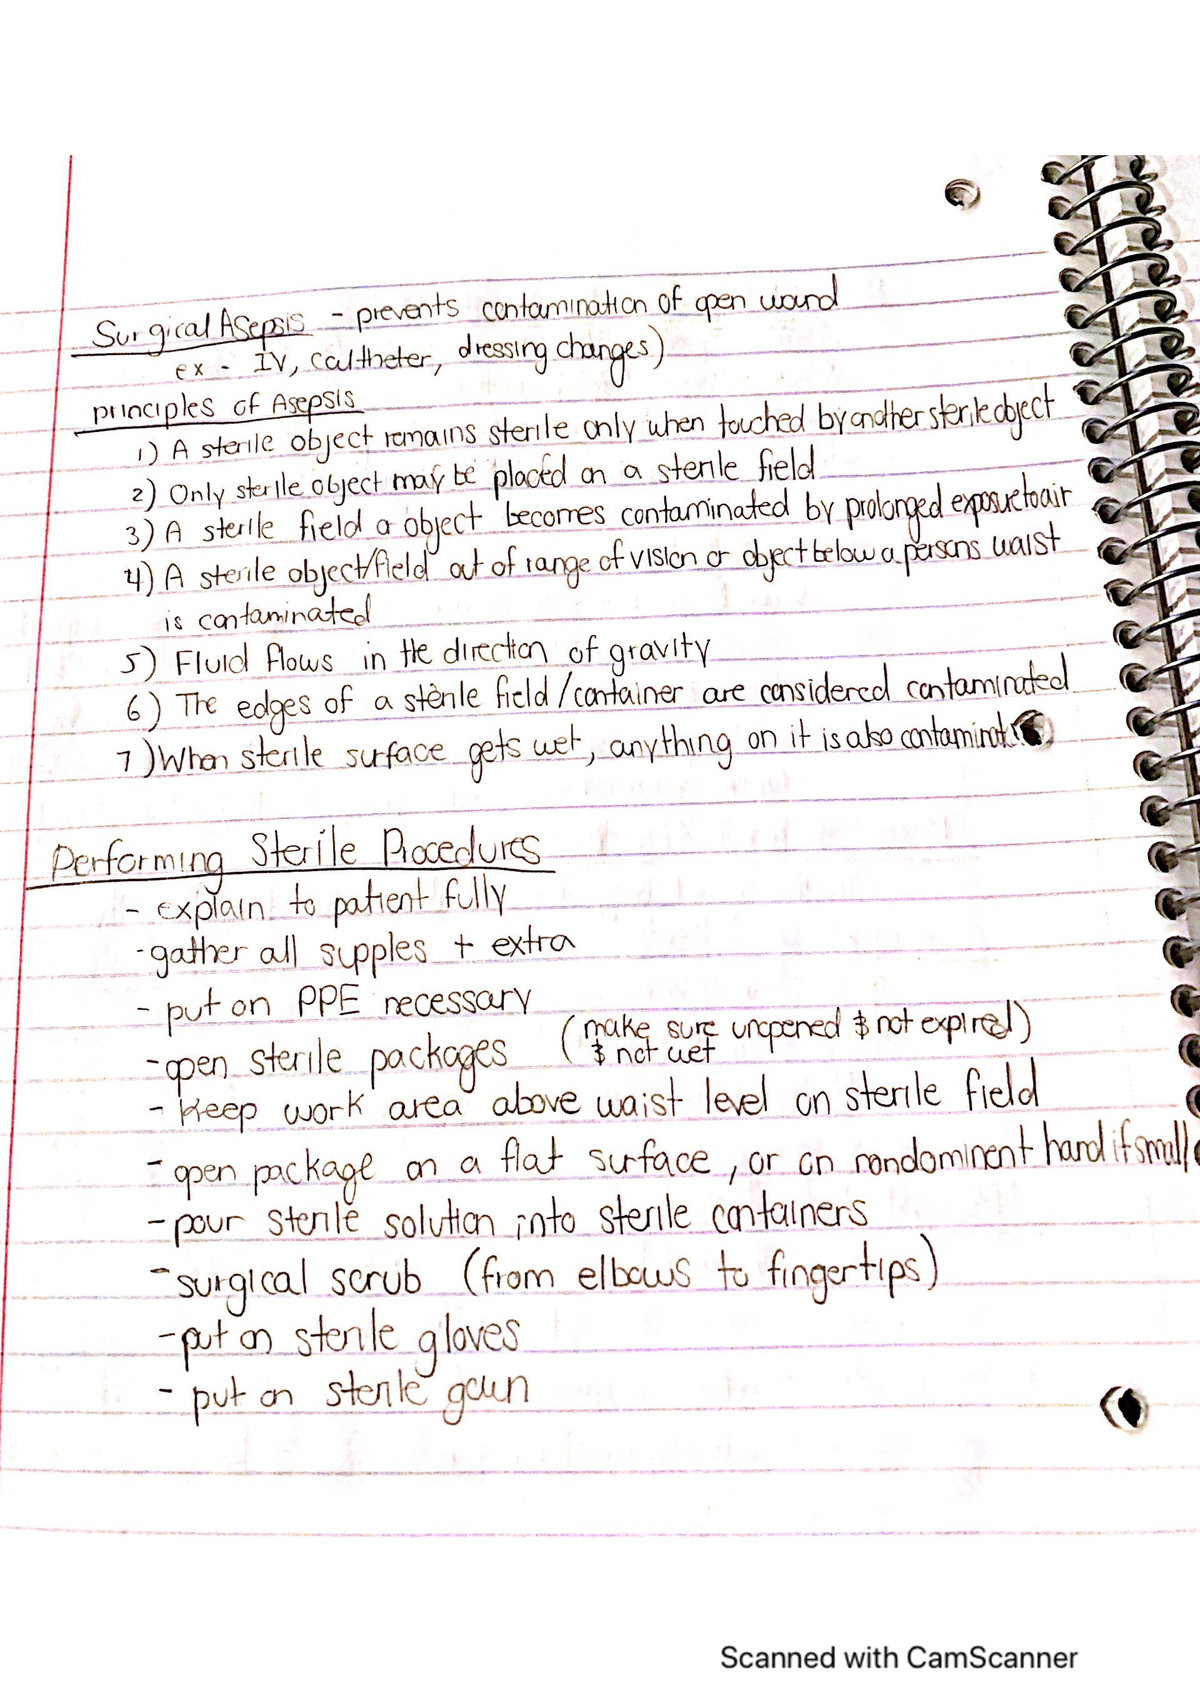 Surgical Asepsis - prevents contamination of open wound
ex - IV, caltheter, dressing changes)
principles of Asepsis
1) A sterile object remains sterile only when touched by another sterile object
2) Only sterile object may be placed on a sterile field
3) A sterile field or object becomes contaminated by prolonged exposure to air
4) A sterile object/field out of range of vision or object below a persons waist
is contaminated
5) Fluid flows in the direction of gravity
6) The edges of a sterile field/container are considered contaminated
7) When sterile surface gets wet, anything on it is also
Performing Sterile Procedures
- explain to patient fully
- gather all supples + extra
- put on PPE necessary
- open sterile packages (make sure unopened & not expired)
& not wet
- Keep work area above waist level on sterile field
- open package on a flat surface, or on nondominent hand if small
- pour sterile solution into sterile containers
- surgical scrub (from elbows to fingertips)
- put on sterile gloves
- put on sterile gown
Scanned with CamScanner